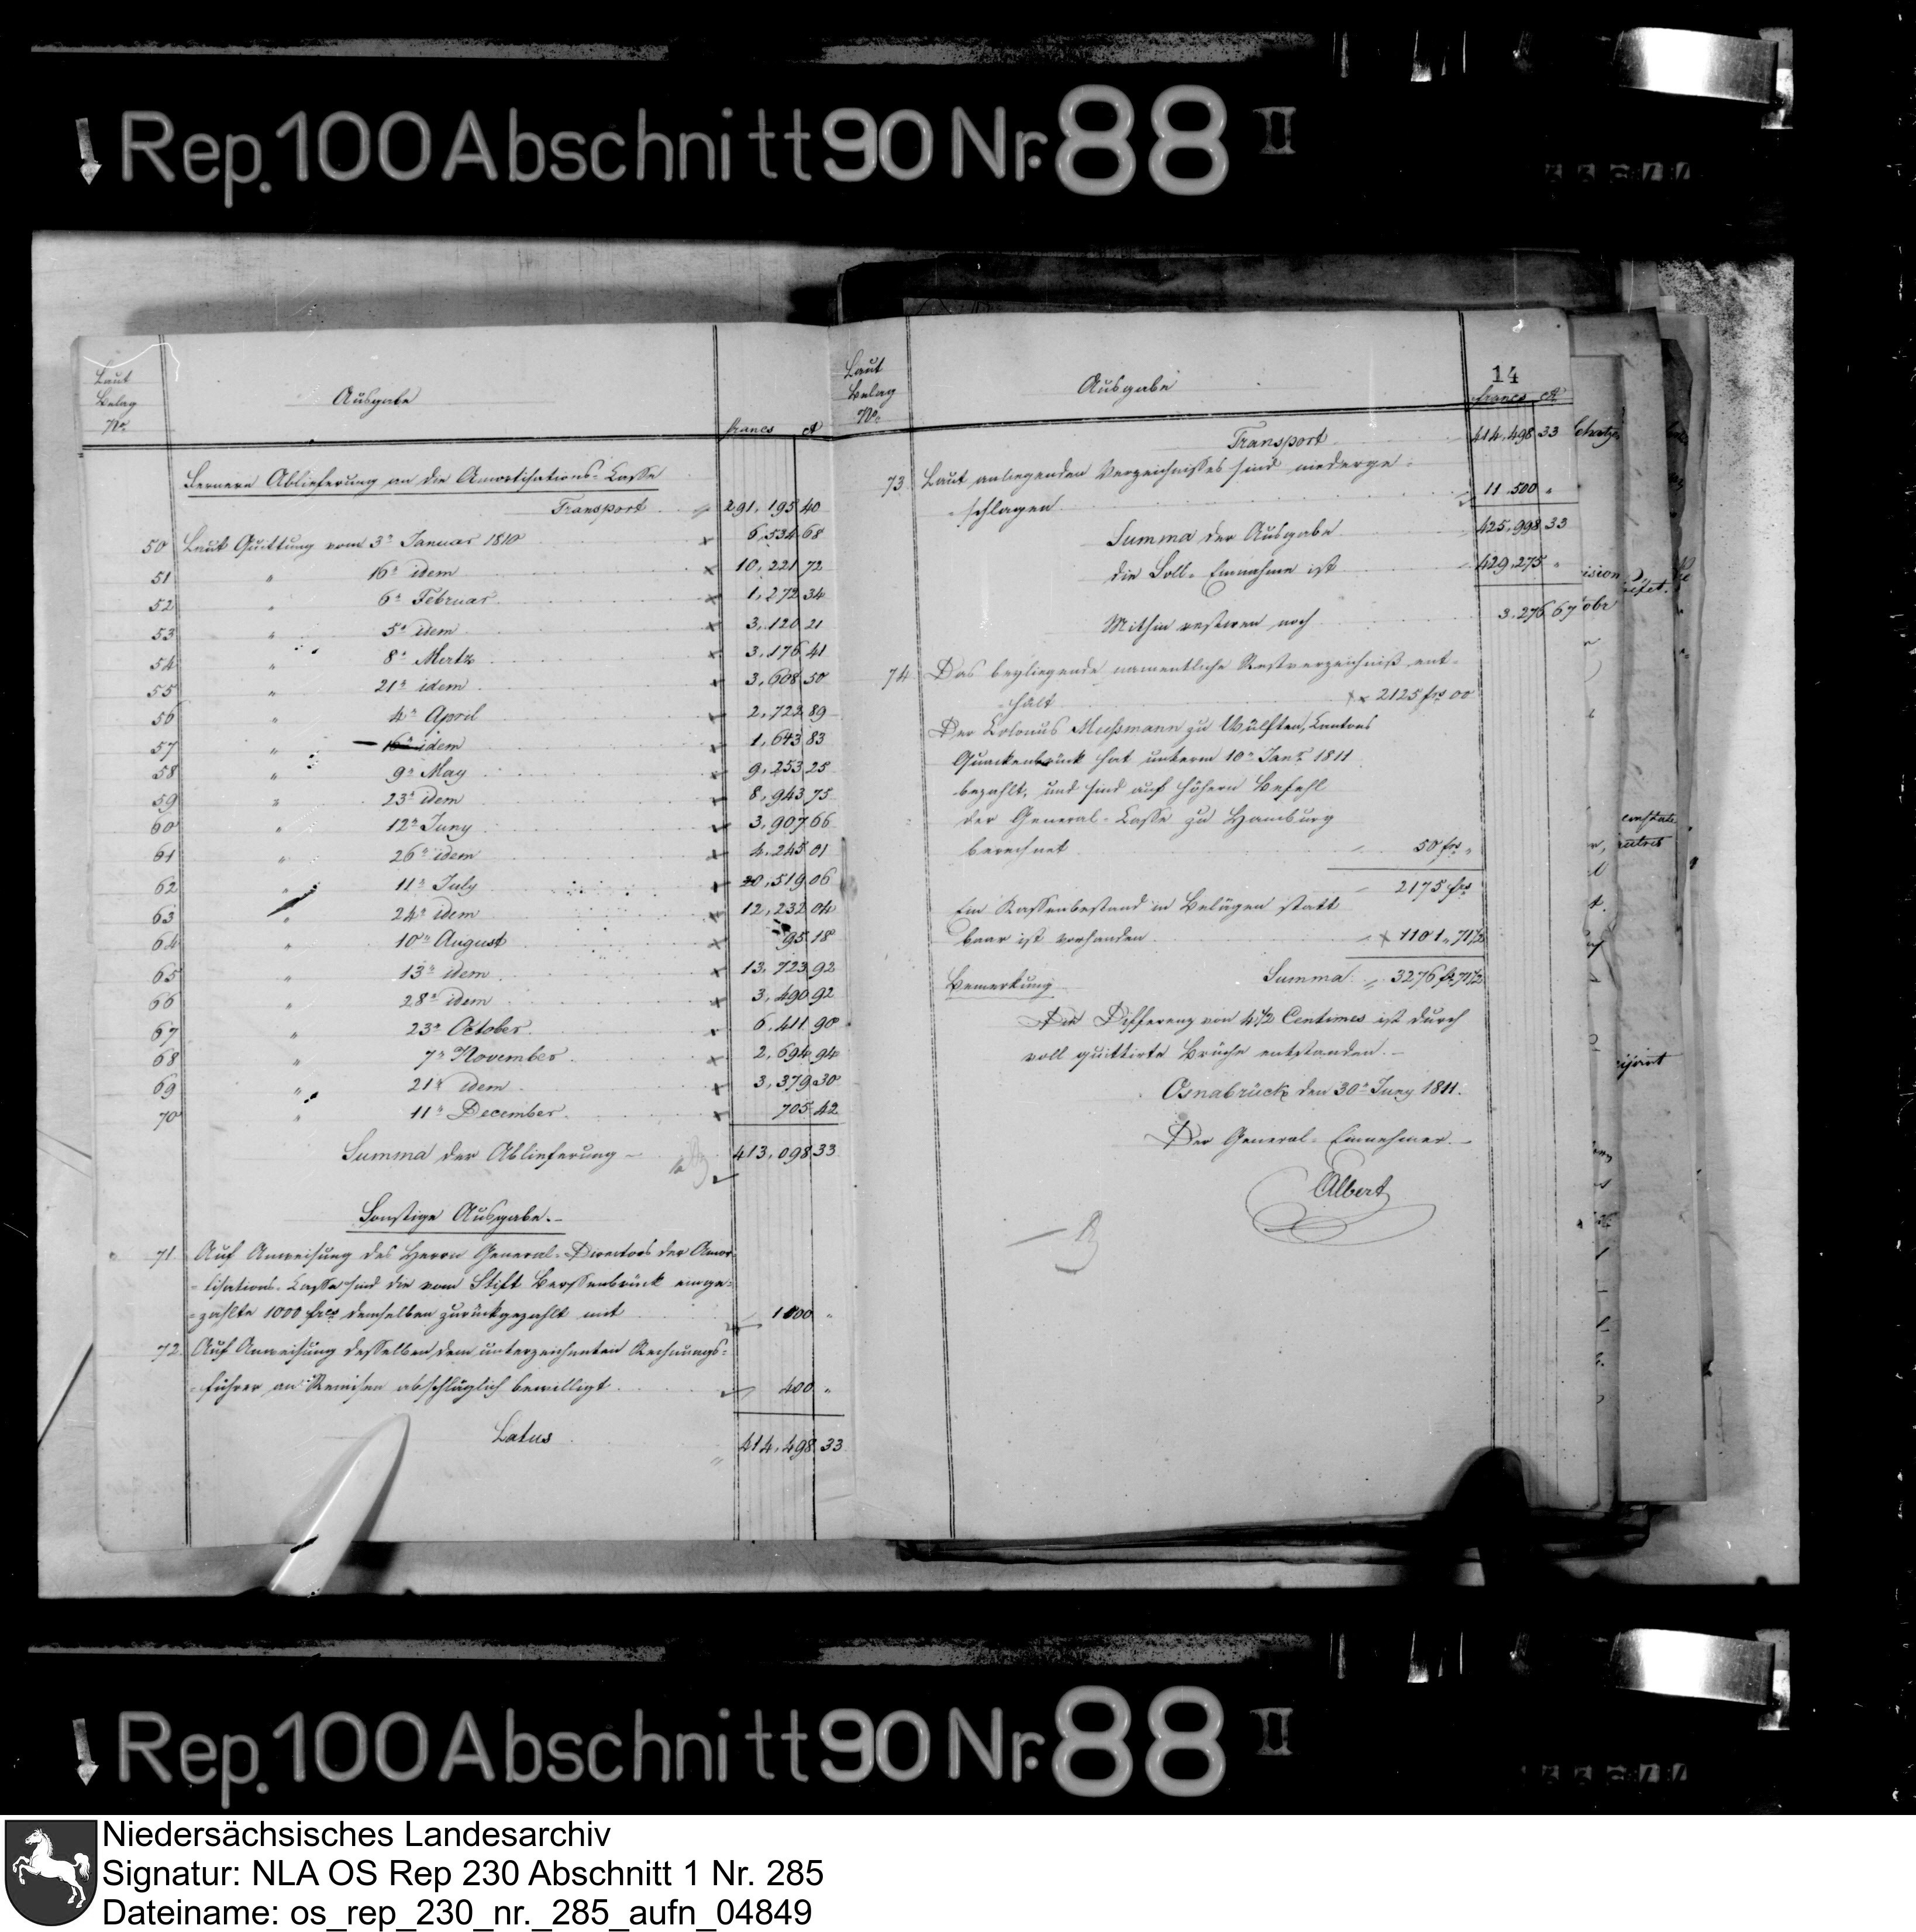 Rep. 100 Abschnitt 90 Nr. 88 II
Laut
Belag
No.
Ausgabe
francs Ct
Fernere Ablieferung an die Amortisations-Casse
Transport 291,195 40
50 Laut Quittung vom 3n Januar 1810 6,534 68
51 " 16n idem 10,221 72
52 " 6n Februar 1,272 34
53 " 5n idem 3,120 21
54 " 8n Mertz 3,176 41
55 " 21n idem 3,608 50
56 " 4n April 2,722 89
57 " 16n idem 1,643 83
58 " 9n May 9,253 25
59 " 23n idem 8,943 75
60 " 12n Juny 3,907 66
61 " 26n idem 4,245 01
62 " 11n July 20,519 06
63 " 24n idem 12,232 04
64 " 10n August 95 18
65 " 13n idem 13,723 92
66 " 28n idem 3,490 92
67 " 23n October 6,411 90
68 " 7n November 2,694 94
69 " 21n idem 3,379 30
70 " 11n December 705 42
Summa der Ablieferung 413,098 33
Sonstige Ausgabe.
71. Auf Anweisung des Herrn General-Directors der Amor-
tisations-Casse sind die vom Stift Berssenbrück einge-
zahlte 1000 frcs demselben zurückgezahlt mit 1000 "
72. Auf Anweisung desselben, dem unterzeichneten Rechnungs-
führer an Remisen abschläglich bewilligt 400 "
Latus 414,498 33
Laut
Belag
No.
Ausgabe
14
francs Ct
Transport 414,498 33
73 Laut anliegenden Verzeichnisses sind niederge-
schlagen 11 500 "
Summa der Ausgabe 425,998 33
die Soll-Einnahme ist 429,275 "
Mithin restiren noch 3,276 67
74 Das beyliegende namentliche Restverzeichniß ent-
hält 2125 frs 00
Der Colonus Mußmann zu Wulften, Cantons
Quackenbrück hat unterm 10n Janr 1811
bezahlt, und sind auf höhern Befehl
der General-Casse zu Hamburg
berechnet 50 frs "
2175 frs
Ein Kassenbestand in Belägen statt
baar ist vorhanden 1101 " 71½
Summa 3276 fr 71½
Bemerkung
Die Differenz von 4½ Centimes ist durch
voll quittirte Brüche entstanden.
Osnabrück den 30n Juny 1811.
Der General-Einnehmer.
Albert
Rep. 100 Abschnitt 90 Nr. 88 II
Niedersächsisches Landesarchiv
Signatur: NLA OS Rep 230 Abschnitt 1 Nr. 285
Dateiname: os_rep_230_nr._285_aufn_04849